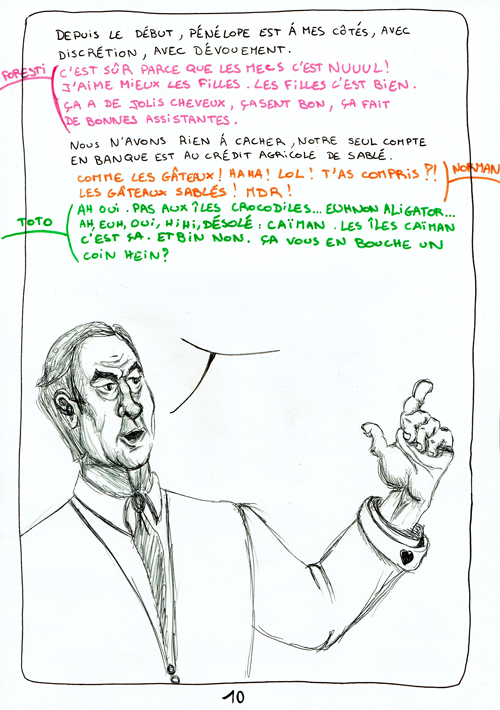 DEPUIS LE DÉBUT, PÉNÉLOPE EST À MES CÔTÉS, AVEC
DISCRÉTION, AVEC DÉVOUEMENT.
FORESTI
C'EST SÛR PARCE QUE LES MECS C'EST NUUUL!
J'AIME MIEUX LES FILLES. LES FILLES C'EST BIEN.
ÇA A DE JOLIS CHEVEUX, ÇA SENT BON, ÇA FAIT
DE BONNES ASSISTANTES.
NOUS N'AVONS RIEN À CACHER, NOTRE SEUL COMPTE
EN BANQUE EST AU CRÉDIT AGRICOLE DE SABLÉ.
NORMAN
COMME LES GÂTEUX! HAHA! LOL! T'AS COMPRIS?!
LES GÂTEAUX SABLÉS! MDR!
TOTO
AH OUI. PAS AUX ÎLES CROCODILES... EUH NON ALIGATOR...
AH, EUH, OUI, HIHI, DÉSOLÉ : CAÏMAN. LES ÎLES CAÏMAN
C'EST ÇA. ET BIN NON. ÇA VOUS EN BOUCHE UN
COIN HEIN?
10